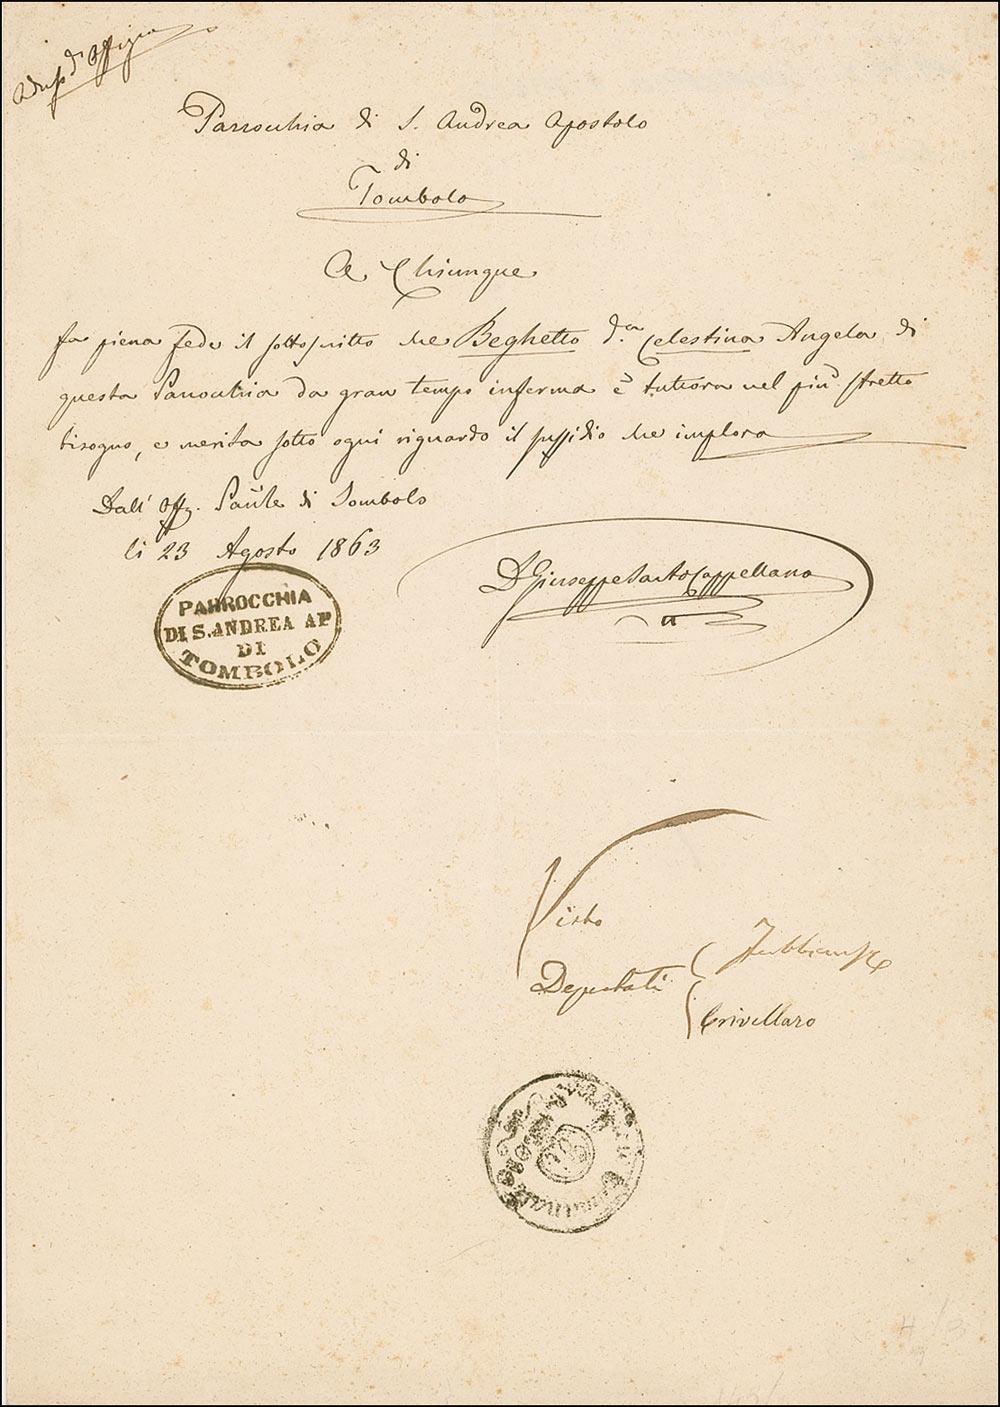 d' Offizio
Parrocchia di S. Andrea Apostolo
di
Tombolo
A Chiunque
fa piena fede il sottoscritto che Beghetto d.a Celestina Angela di
questa Parrocchia da gran tempo inferma è tuttora nel più stretto
bisogno, e merita sotto ogni riguardo il sussidio che implora
Dall' Off. Parr.le di Tombolo
li 23 Agosto 1863
D Giuseppe Sarto Cappellano
PARROCCHIA
DI S. ANDREA AP
DI
TOMBOLO
Visto
Deputati
Crivellaro